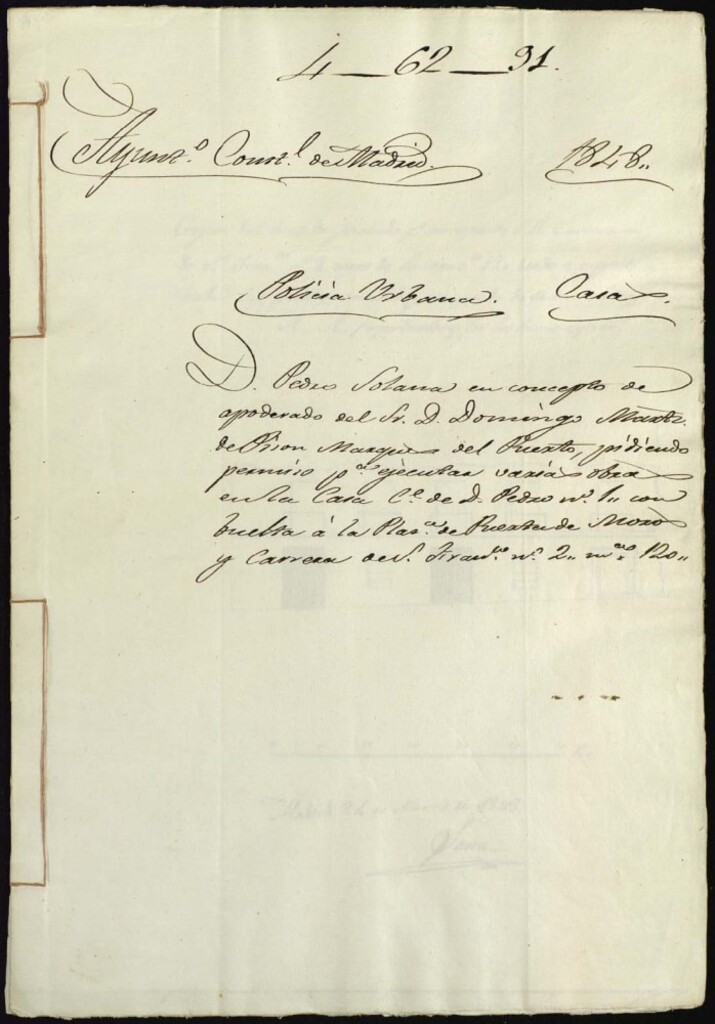 4 — 62 — 91.
Ayunt.º Const.l de Madrid. 1848..
Policia Urbana. Casas.
D. Pedro Solana en concepto de
apoderado del Sr. D. Domingo Martz.
de Pison Marques del Puerto, pidiendo
permiso p.a ejecutar varias obras
en la Casa C.e de D. Pedro nº. 1.. con
buelta á la Plaz.a de Puerta de Moros
y Carrera de S. Fran.co nº. 2.. m.na 120..